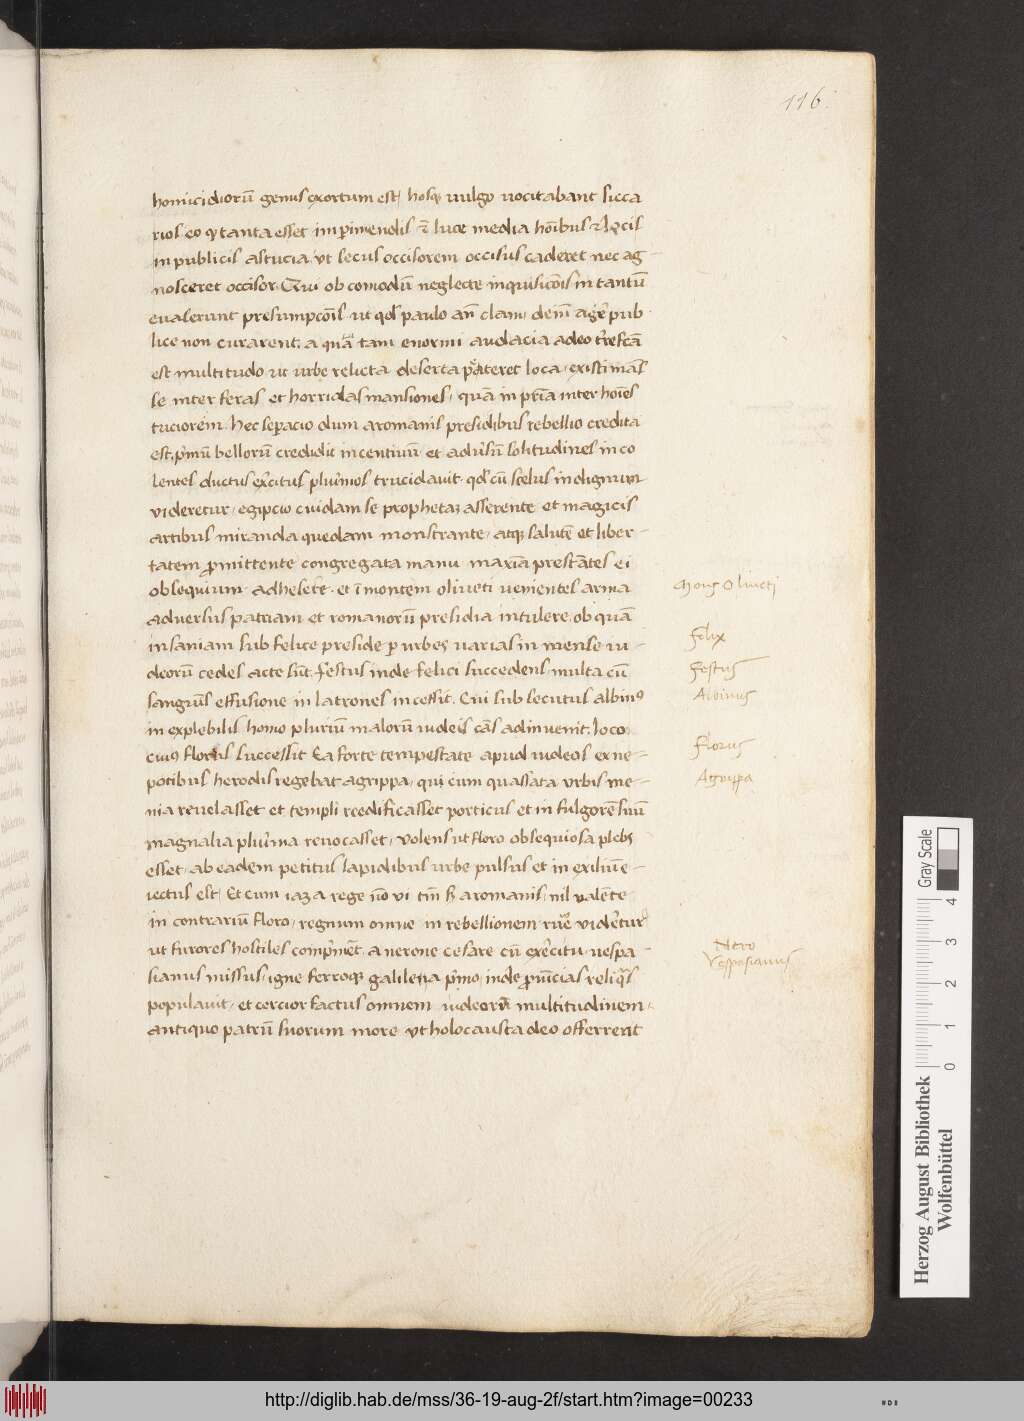 116.
homicidiorū genus exortum est, hosq; vulgo vocitabant sicca
rios eo qꝫ tanta esset in perimendis & luce media hoībus & locis
in publicis astucia, ut secus occisorem occisus caderet nec ag
nosceret occisor. Qui ob comodū neglecte inquisicōis in tantū
evaserunt presumpcōis ut qd paulo an clam, dein agere pub
lice non curarent, a qua tam enormi audacia adeo
est multitudo ut urbe relicta deserta peteret loca, existimās
se inter feras et horridas mansiones, quā in pria inter hoīes
tuciorem. hec seperacio dum a romanis presidibus rebellio credita
est, pmū bellorū credidit incentivū et adusū solitudines inco
lentes ductus exercitus plurimos trucidavit. qd cū scelus indignum
videretur, egipcio cuidam se prophetaꝫ asserente et magicis
artibus miranda quedam monstrante, atqꝫ salutē et liber-
tatem promittente congregata manu maxiā prestātes ei
obsequium adhesere. et ī montem oliveti venientes arma
adversus patriam et romanorū presidia intulere, ob quā
insaniam sub felice preside p urbes varias in mense iu-
deorū cedes acte sūt. festus inde felici succedens, multa cū
sanguīs effusione in latrones incessit. Cui sub secutus albinꝰ
in explebilis homo pluriū malorū iudeis cās adinvenit. loco
cuiꝰ florus successit Ea forte tempestate apud iudeos ex ne-
potibus herodis regebat agrippa, qui cum quassata urbis me-
nia revelasset et templi reedificasset porticus et in fulgorē suū
magnalia plurima revocasset, volens ut floro obsequiosa plebs
esset, ab eadem petitus lapidibus urbe pulsus et in exiliū e-
iectus est, Et cum iaꝫ a rege nō vi tm sꝫ a romanis, nil valēte
in contrariū floro, regnum omne in rebellionem ruere videretur
ut furores hostiles comprimeret a nerone cesare cū exercitu vespa-
sianus missus, igne ferroqꝫ galileꝫa pmo, inde provīcias reliqas
populavit, et cercior factus omnem iudeorū multitudinem
antiquo patrū suorum more ut holocausta deo offerrent
Mons Oliveti
Felix
Festus
Albinus
Florus
Agrippa
Nero
Vespasianus
Herzog August Bibliothek
Wolfenbüttel
Gray Scale
0 1 2 3 4
http://diglib.hab.de/mss/36-19-aug-2f/start.htm?image=00233